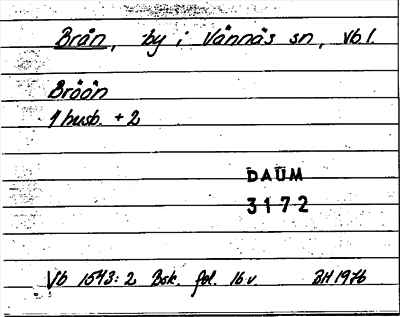 Brån, by i Vännäs sn, Vb.l.
Bröön
1 husb. + 2
DAUM
3172
Vb 1543:2 Bsk. fol. 16 v. BH 1976